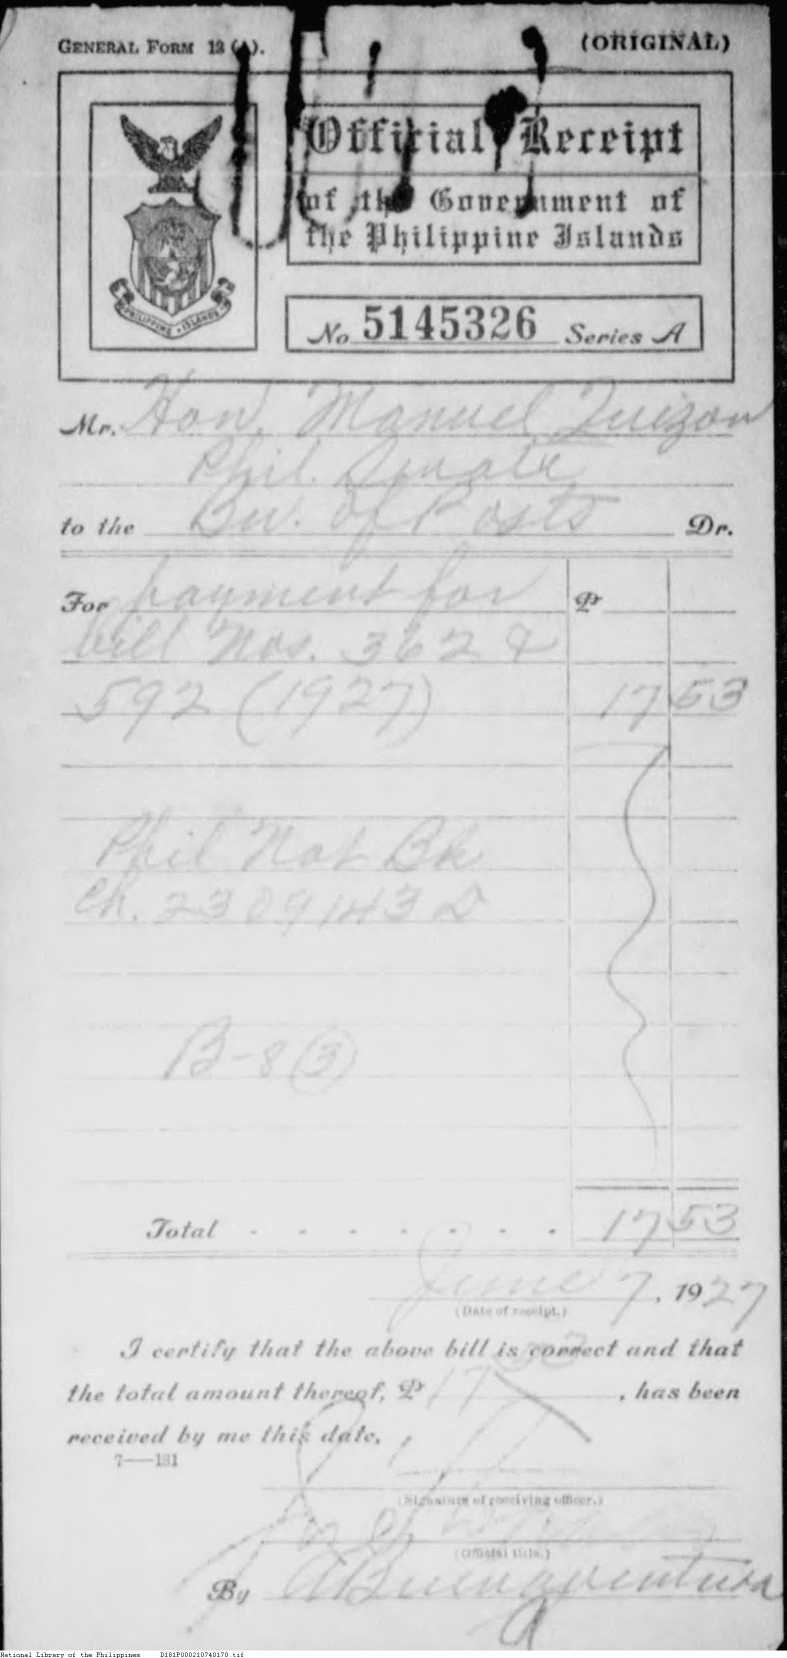 GENERAL FORM 13 (A).
(ORIGINAL)
Official Receipt
of the Government of
the Philippine Islands
PHILIPPINE ISLANDS
No 5145326 Series A
Mr. Hon. Manuel Quizon
Phil. Senate
to the Bu. of Posts Dr.
For payment for ₱
bill Nos. 362 &
592 (1927) 17 53
Phil Nat Bk
Ch. 2309143 D
B-8 (3)
Total . . . . . . . 17 53
June 7, 1927
(Date of receipt.)
I certify that the above bill is correct and that
the total amount thereof, ₱ 17 53, has been
received by me this date.
7—131
(Signature of receiving officer.)
(Official title.)
By A Buenaventura
National Library of the Philippines D181P000210740170.tif